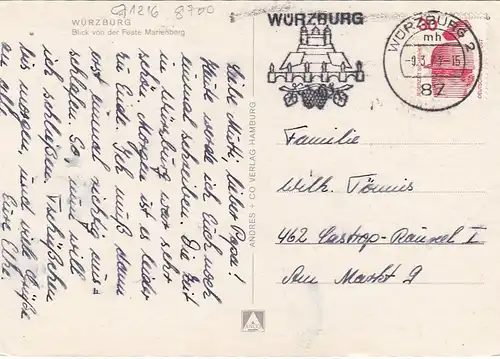 G1216 8700
WÜRZBURG
Blick von der Feste Marienberg
Liebe Mutti, lieber Papa!
Heut werde ich Euch noch
einmal schreiben. Die Zeit
in Würzburg war sehr
schön. Morgen ist es leider
zu Ende. Ich muß dann
erst einmal richtig aus-
schlafen. So, nun will
ich schließen. Tschüßchen
bis morgen, und viele Grüße
an alle
Eure
ANDRES + CO VERLAG HAMBURG
WÜRZBURG
WÜRZBURG 2
mh
-9.3. -15
87
30
Familie
Wilh. Tönnis
462 Castrop-Rauxel I
Am Markt 9